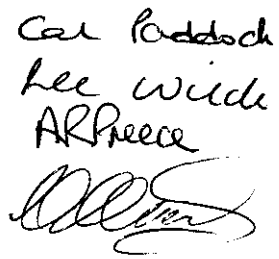 Cal Paddock
Lee Wilde
ARPreece